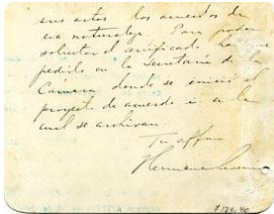 sus actos los acuerdos de
esa naturaleza. Para poder
solicitar el certificado hay que
pedirlo en la Secretaría de la
Cámara donde se inició el
proyecto de acuerdo i en la
cual se archivan.
Tu affmo